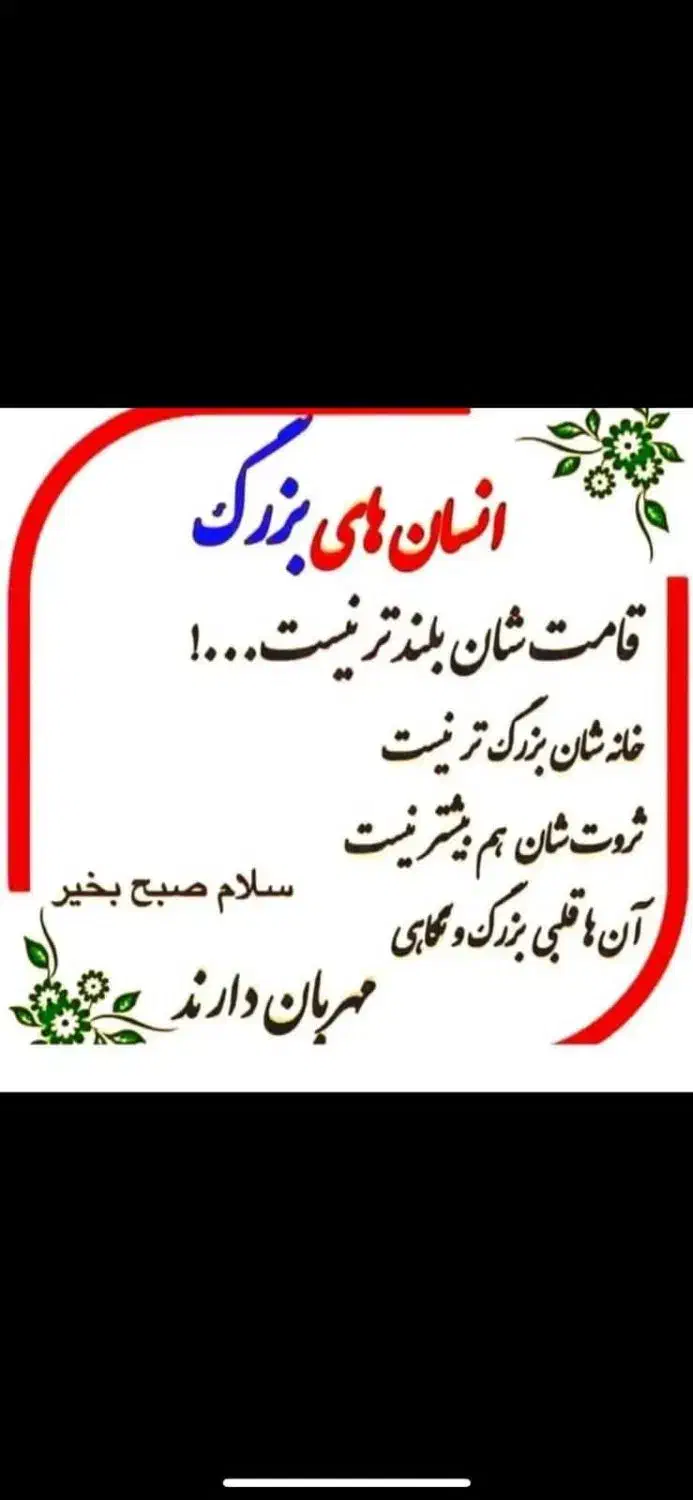 انسان های بزرگ
قامت شان بلند تر نیست...!
خانه شان بزرگ تر نیست
ثروت شان هم بیشتر نیست
سلام صبح بخیر
آن ها قلبی بزرگ و نگاهی
مهربان دارند